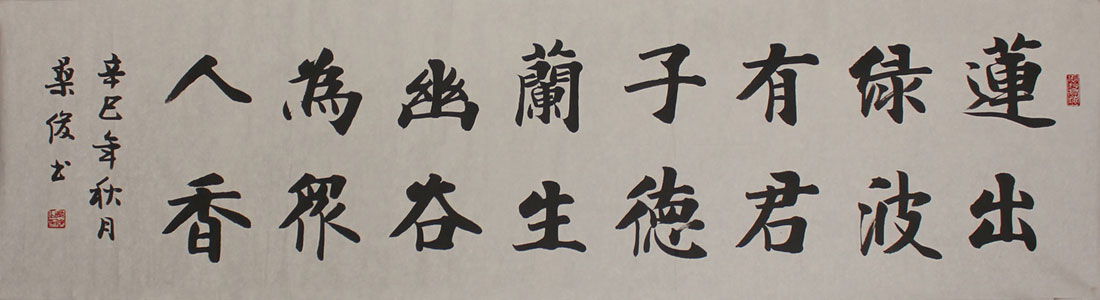 蓮出
绿波
有君
子德
蘭生
幽谷
為眾
人香
辛巳年秋月
桑俊书